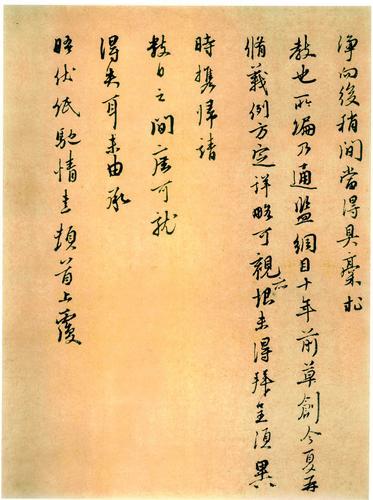 淨向後稍間當得具稾求
教也所編乃通鑑綱目十年前草創今夏再
脩義例方定詳略可觀所恨未得拜呈須異
時攜歸請
數日之間庶可就
得失耳未由承
晤伏紙馳情熹頓首上覆